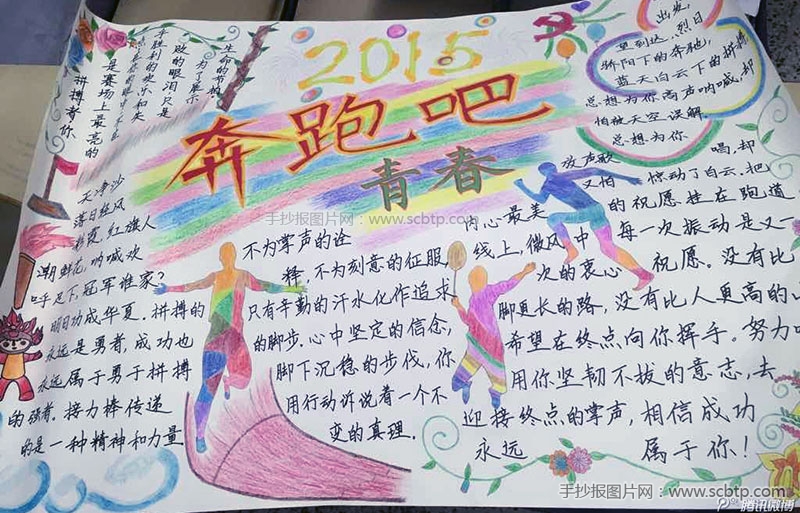 2015
奔跑吧
青春
为了展示
败的眼泪只是
手胜利的欢乐和失
是赛场上最亮的
拼搏着你
天净沙
落日轻风
彩霞,红旗人
潮鲜花,呐喊欢
呼足下,冠军谁家?
明日功成华夏.拼搏的
永远是勇者,成功也
永远属于勇于拼搏
的强者.接力棒传递
的是一种精神和力量
不为掌声的诠
释,不为刻意的征服,
只有辛勤的汗水化作追求
的脚步.心中坚定的信念,
脚下沉稳的步伐,你
用行动诉说着一个不
变的真理.
出发,
望到达,烈日
骄阳下的奔驰,
蓝天白云下的拼搏
总想为你高声呐喊,却
怕被天空误解.
总想为你
放声歌唱,却
又怕惊动了白云.把
内心最美的祝愿挂在跑道
线上,微风中每一次振动是又一
次的衷心祝愿.没有比
脚更长的路,没有比人更高的山
希望在终点向你挥手.努力吧
用你坚韧不拔的意志,去
迎接终点的掌声,相信成功
永远属于你!
手抄报图片网:www.scbtp.com
手抄报图片网:www.scbtp.com
腾讯微博